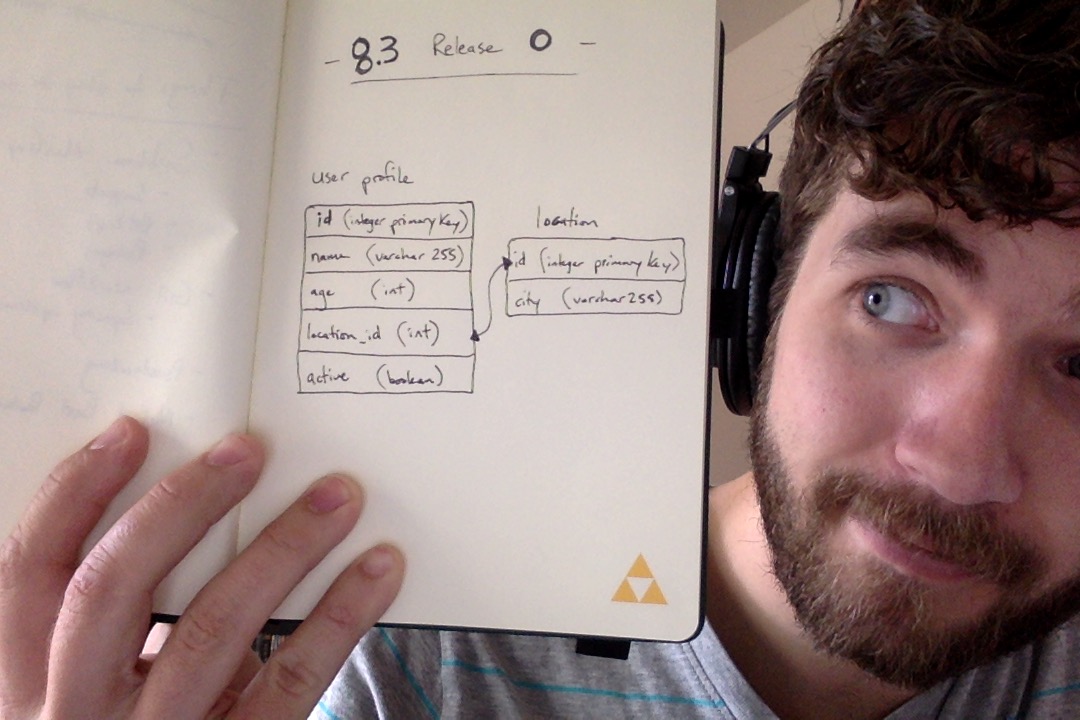 - 8.3 Release 0 -
user profile
id (integer primary key)
name (varchar 255)
age (int)
location_id (int)
active (boolean)
location
id (integer primary key)
city (varchar 255)